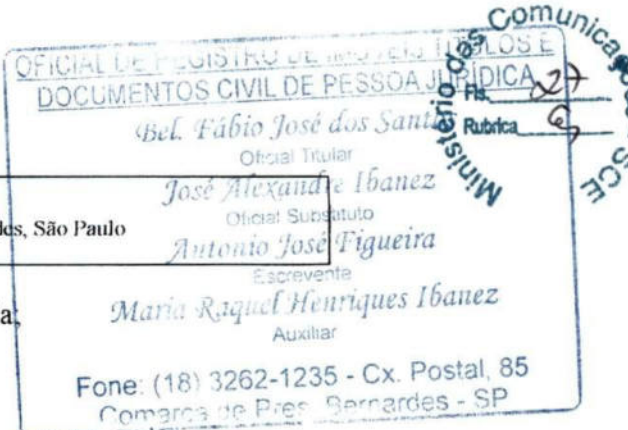 OFICIAL DE REGISTRO DE IMÓVEIS TÍTULOS E
DOCUMENTOS CIVIL DE PESSOA JURÍDICA
Bel. Fábio José dos Sant
Oficial Titular
José Alexandre Ibanez
Oficial Substituto
Antonio José Figueira
Escrevente
Maria Raquel Henriques Ibanez
Auxiliar
Fone: (18) 3262-1235 - Cx. Postal, 85
Comarca de Pres. Bernardes - SP
Ministério das Comunica
SCE
Fls. 27
Rubrica
des, São Paulo
a,